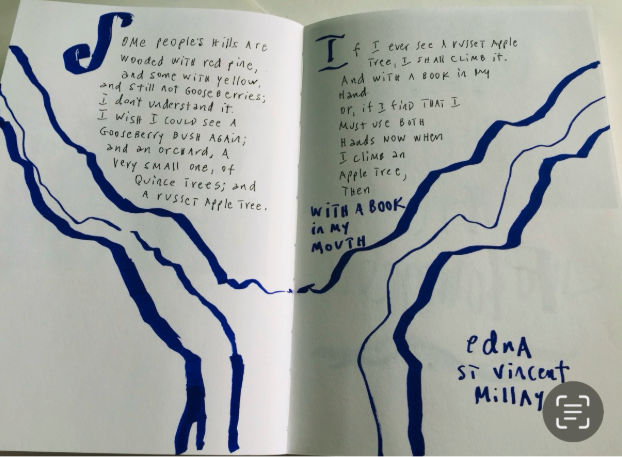 SOME people's Hills Are
wooded with red pine,
and some with yellow,
and still not Gooseberries;
I don't understand it.
I wish I could see A
Gooseberry Bush Again;
and an orchard, A
very small one, of
Quince Trees; and
A russet Apple Tree.
If I ever see A russet Apple
Tree, I shall climb it.
And with A Book in my
Hand
or, if I find THAT I
Must use Both
Hands now when
I climb an
Apple Tree,
Then
WITH A BOOK
in My
MOUTH
ednA
ST Vincent
Millay